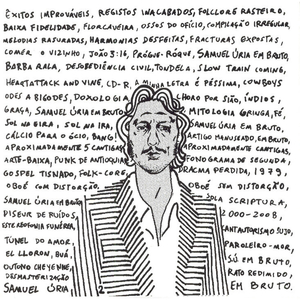 ÊXITOS IMPROVÁVEIS, REGISTOS INACABADOS, FOLCLORE RASTEIRO,
BAIXA FIDELIDADE, FLORCAVEIRA, OSSOS DO OFÍCIO, COMPILAÇÃO IRREGULAR,
MELODIAS RASURADAS, HARMONIAS DESFEITAS, FRACTURAS EXPOSTAS,
COMER O VIZINHO, JOÃO 3:16, PRÓGNE-RÓQUE, SAMUEL ÚRIA EM BRUTO,
BARBA RALA, DESOBEDIÊNCIA CIVIL, TONDELA, SLOW TRAIN COMING,
HEARTATTACK AND VINE, CD-R, A MINHA LETRA É PÉSSIMA, COWBOYS
ODES A BIGODES, DOXOLOGIA CHORO POR SIÃO, ÍNDIOS,
GRAÇA, SAMUEL ÚRIA EM BRUTO, MITOLOGIA GRINGA, FÉ,
SOL NA EIRA, SOL NA IRA, SAMUEL ÚRIA EM BRUTO,
CÁLCIO PARA O GESO, BANG, ARTIGO MANUSEADO, EM BRUTO,
APROXIMADAMENTE 5 CANTIGAS APROXIMADAMENTE CANTIGAS,
ARTE-BAIXA, PUNK DE ANTIOQUIA FONOGRAMA DE SEGUNDA,
GOSPEL TISNADO, FOLK-CORE, DRACMA PERDIDA, 1979,
OBOÉ COM DISTORÇÃO, OBOÉ SEM DISTORÇÃO,
SAMUEL ÚRIA EM BRUTO SOLA SCRIPTURA,
DISEUR DE RUÍDOS, 2000-2008,
ESTEREOFONIA SUMÉRIA, ANTIAUTORISMO SUJO,
TÚNEL DO AMOR, PAROLEIRO-MOR,
EL LLORON, BUÁ, SÚ EM BRUTO,
OUTONO CHEYENNE, RATO REDIMIDO,
DESMASTERIZAÇÃO EM BRUTO.
SAMUEL ÚRIA, 2